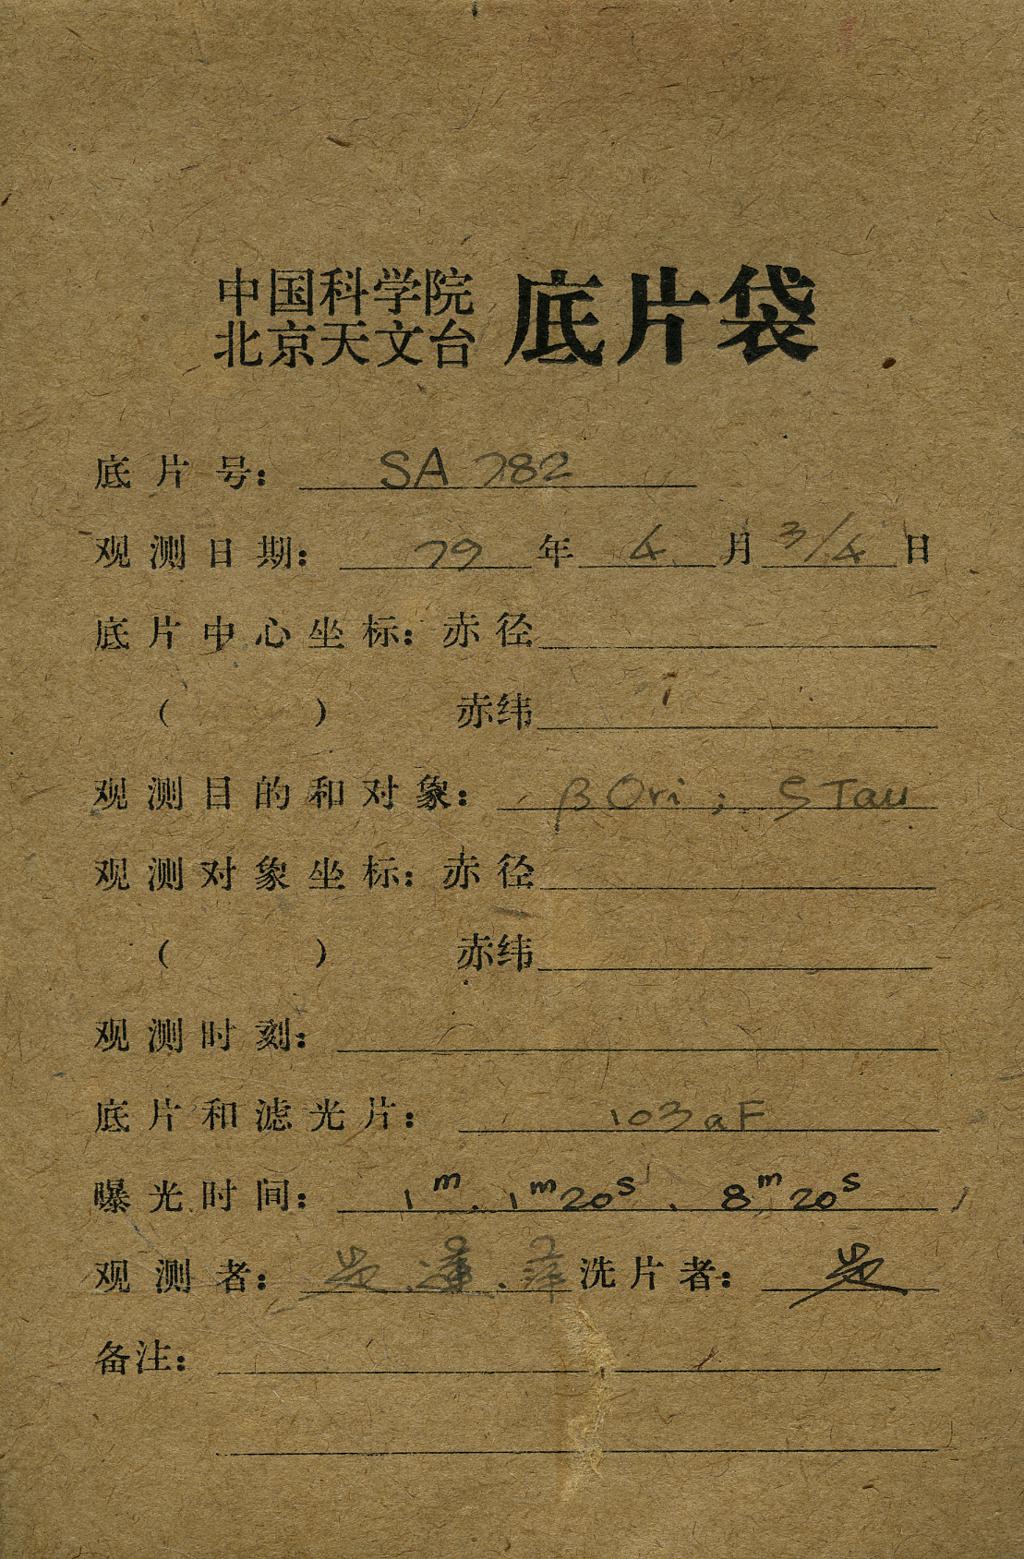 中国科学院
北京天文台 底片袋
底片号: SA 782
观测日期: 79年4月3/4日
底片中心坐标: 赤径
( ) 赤纬
观测目的和对象: β Ori ; ζ Tau
观测对象坐标: 赤径
( ) 赤纬
观测时刻:
底片和滤光片: 103aF
曝光时间: 1m、1m20s、8m20s
观测者: 洗片者:
备注: